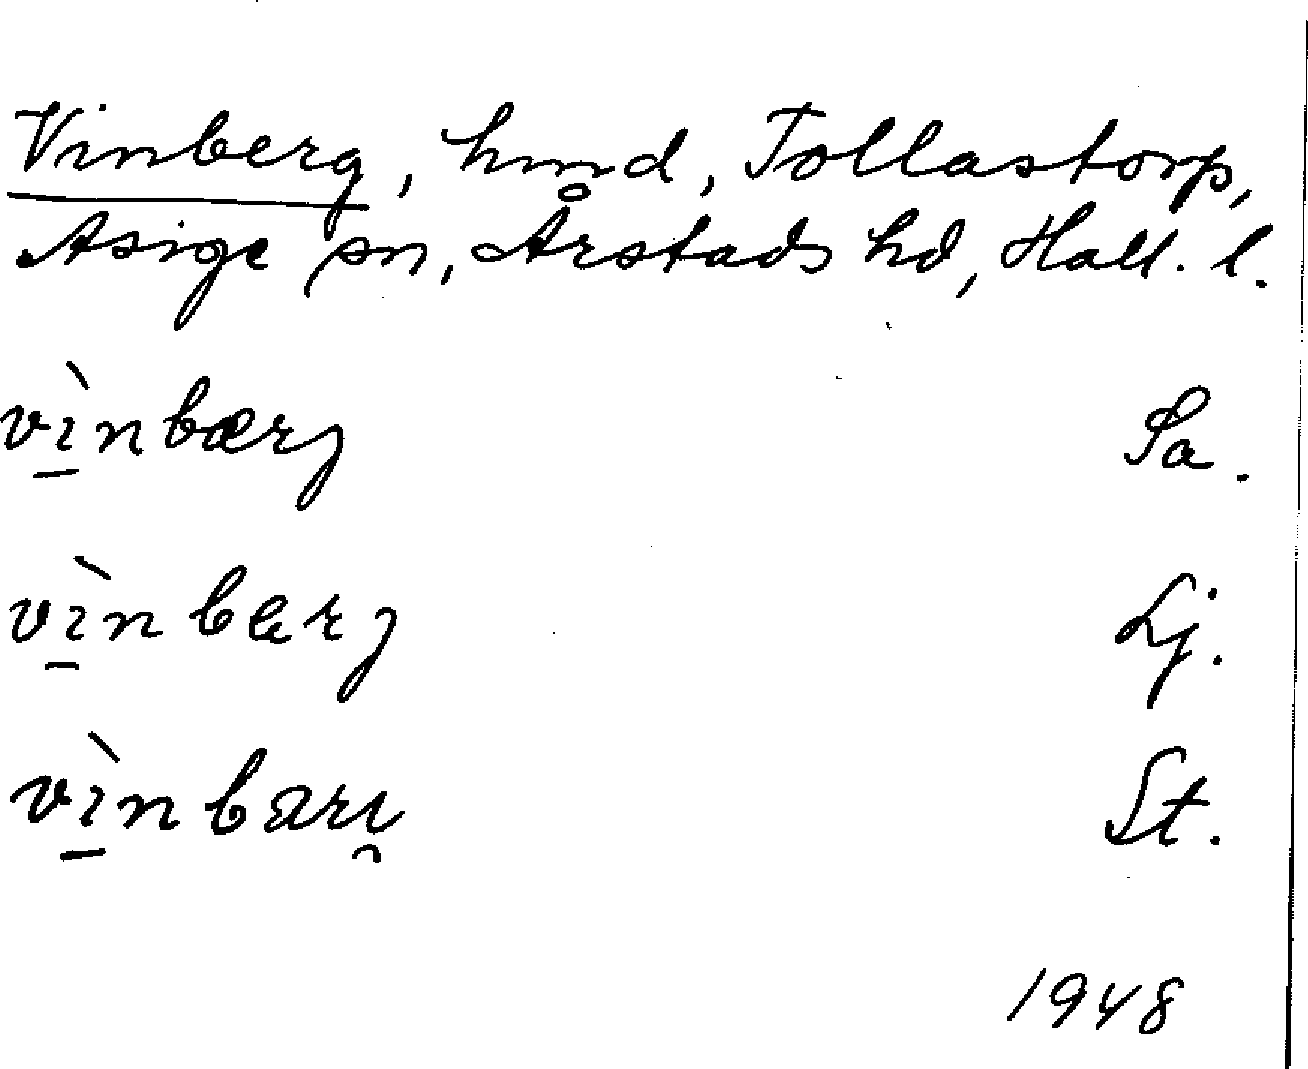 Vinberg, hmd, Tollastorp,
Asige sn, Årstads hd, Hall. l.
vı̲̀nbærȷ Sa.
vı̲̀nbærȷ Lj.
vı̲̀nbærı̯ St.
1948